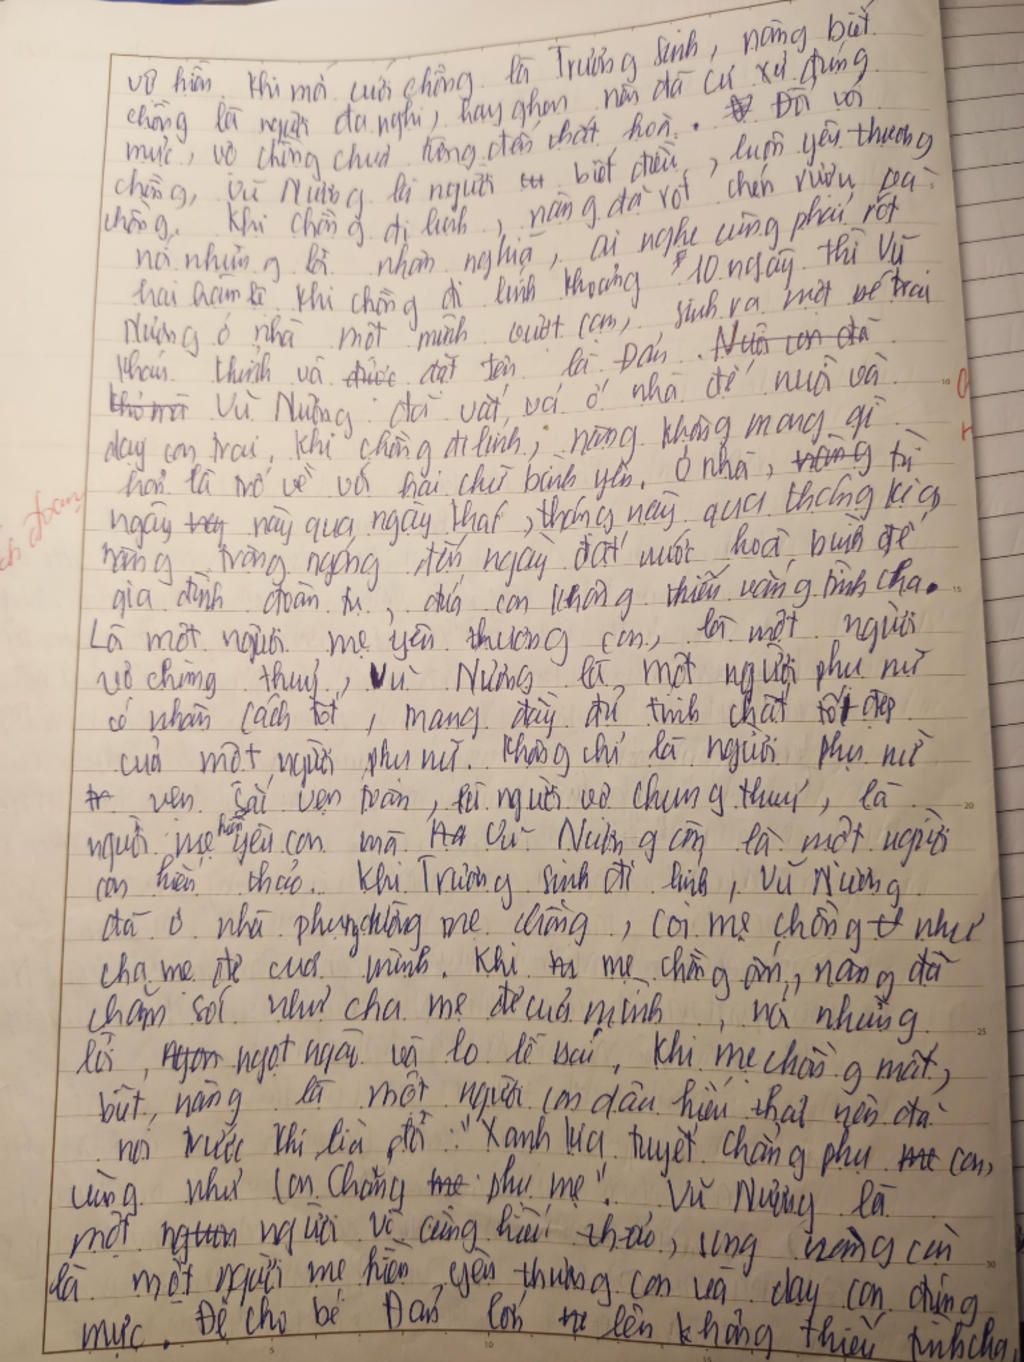 vợ hiền. Khi mới cưới chồng là Trương Sinh, nàng biết
chồng là người đa nghi, hay ghen nên đã cư xử đúng
mực, vợ chồng chưa từng đến thất hoà. Đối với
chồng, Vũ Nương là người biết điều, luôn yêu thương
chồng. Khi chồng đi lính, nàng đã rót chén rượu
nói những lời nhân nghĩa, ai nghe cũng phải rớt
hai hàm lệ. Khi chồng đi lính khoảng 10 ngày thì Vũ
Nương ở nhà một mình vượt cạn, sinh ra một bé trai
khám khỉnh và đặt tên là Đản. Nuôi con đã
Vũ Nương đã vất vả ở nhà để nuôi và
dạy con trai, khi chồng đi lính, nàng không mong gì
hơn là trở về với hai chữ bình yên. Ở nhà, nàng từ
ngày này qua ngày khác, tháng này qua tháng kia,
nàng trông ngóng đến ngày đất nước hoà bình để
gia đình đoàn tụ, đứa con không thiếu vắng tình cha.
Là một người mẹ yêu thương con, là một người
vợ chung thuỷ, Vũ Nương là một người phụ nữ
có nhân cách tốt, mang đầy đủ tính chất tốt đẹp
của một người phụ nữ. Không chỉ là người phụ nữ
vẹn sắt vẹn toàn, là người vợ chung thuỷ, là
người mẹ hiền yêu con mà Vũ Nương còn là một người
con hiếu thảo. Khi Trương Sinh đi lính, Vũ Nương
đã ở nhà phụng dưỡng mẹ chồng, coi mẹ chồng như
cha mẹ đẻ của mình. Khi mẹ chồng ốm, nàng đã
chăm sóc như cha mẹ đẻ của mình, nói những
lời, ngọt ngào và lo lễ bái. Khi mẹ chồng mất,
biết, nàng là một người con dâu hiếu thảo nên đã
nói trước khi lìa đời: "Xanh kia quyết chẳng phụ con,
cũng như con chẳng phụ mẹ". Vũ Nương là
một người vô cùng hiếu thảo, song nàng còn
là một người mẹ hiền yêu thương con và dạy con đúng
mực. Để cho bé Đản lớn lên không thiếu tình cha,